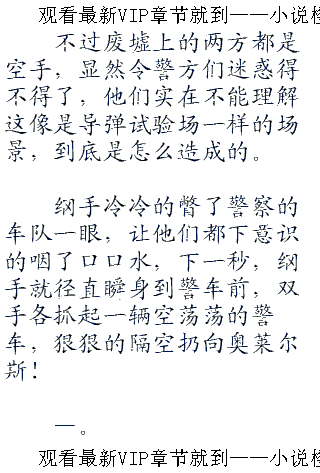 观看最新VIP章节就到——小说检
不过废墟上的两方都是
空手，显然令警方们迷惑得
不得了，他们实在不能理解
这像是导弹试验场一样的场
景，到底是怎么造成的。
纲手冷冷的瞥了警察的
车队一眼，让他们都下意识
的咽了口口水，下一秒，纲
手就径直瞬身到警车前，双
手各抓起一辆空荡荡的警
车，狠狠的隔空扔向奥莱尔
斯！
一。
观看最新VIP章节就到——小说检